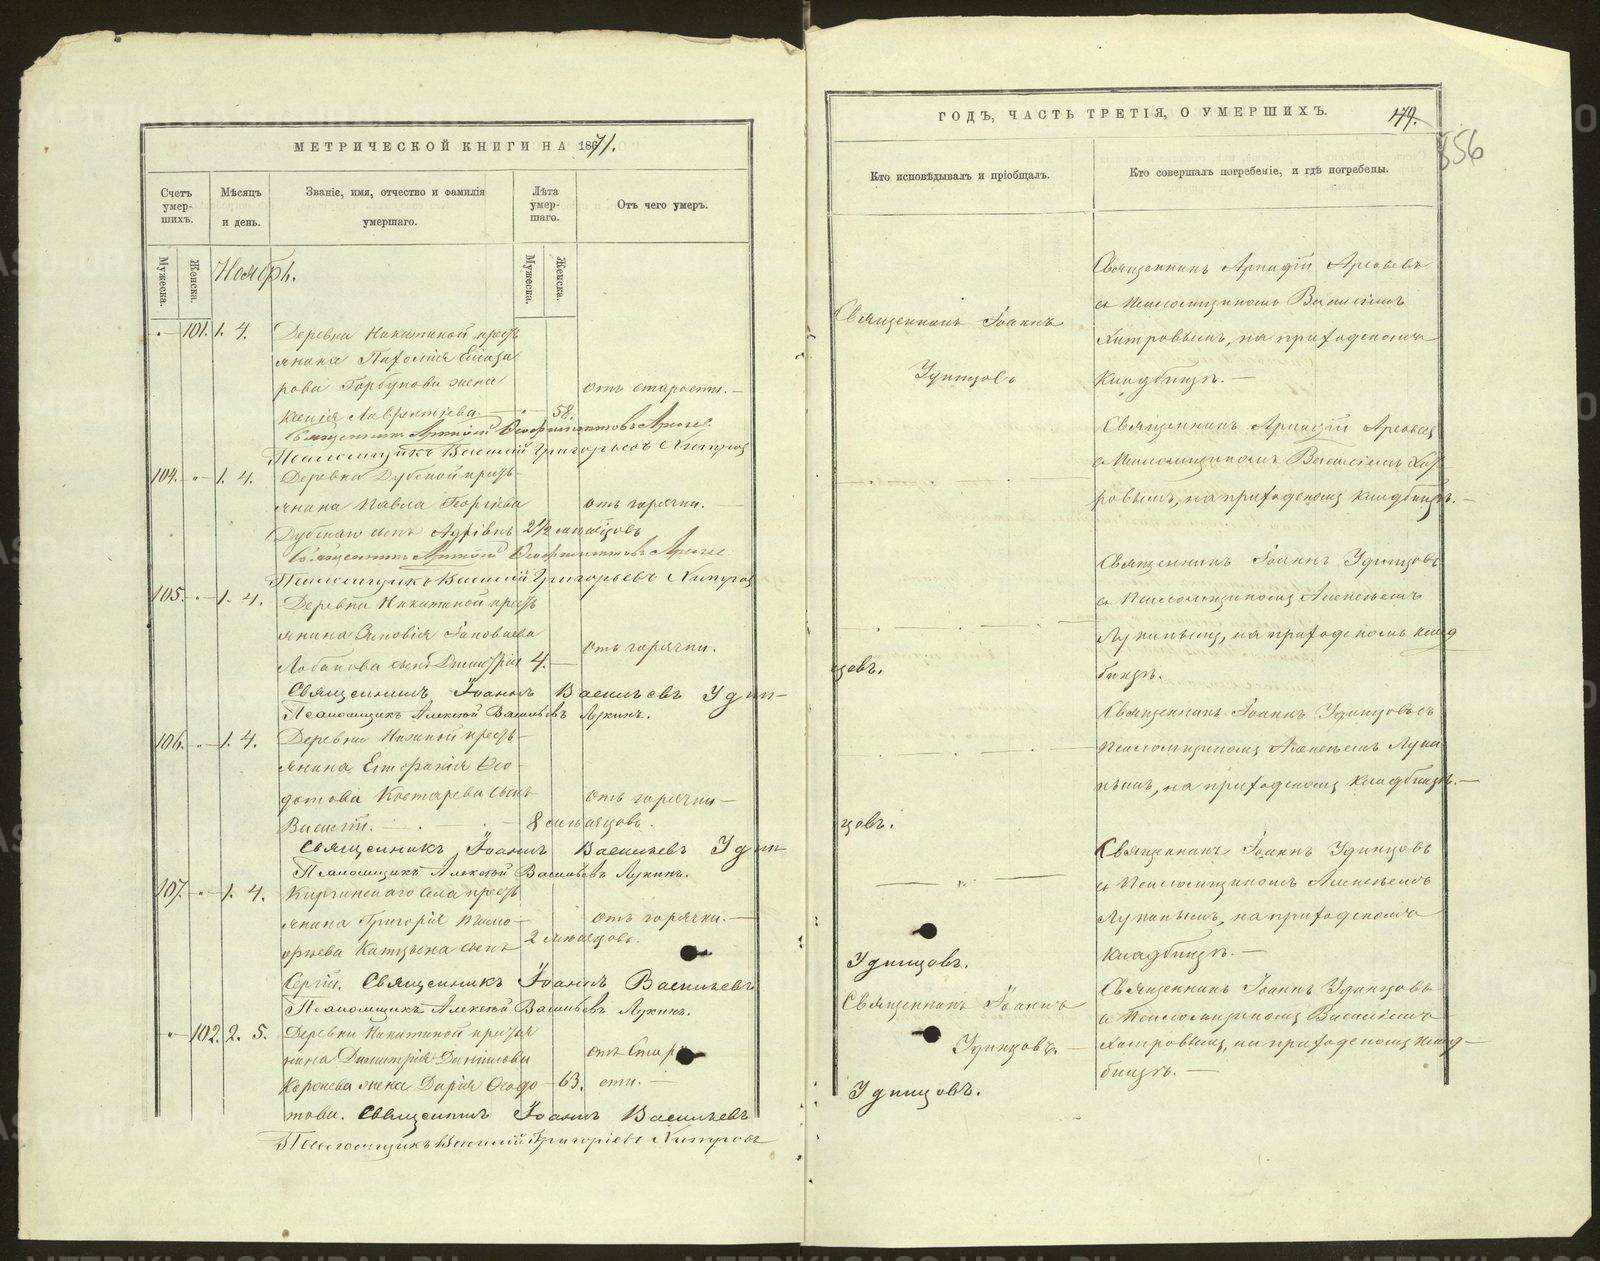 МЕТРИЧЕСКОЙ КНИГИ НА 1871.
Счетъ умер-шихъ.
Мѣсяцъ и день.
Званіе, имя, отчество и фамилія умершаго.
Лѣта умер-шаго.
Отъ чего умеръ.
Мужеска.
Женска.
Мужеска.
Женска.
Ноябрь.
101. 1. 4. Деревни Никитиной кресть
янина
рова Горбунова жена
отъ старости.
Ксенія Лаврентіева 58.
Псаломщикъ Василій Григорьевъ Хитровъ
104. 1. 4. Деревни Дубской кресть-
янина Павла Георгіева
отъ горячки.
Дубскаго сынъ 2½ мѣсяцовъ
Псаломщикъ Василій Григорьевъ Хитровъ
105. 1. 4. Деревни Никитиной кресть
янина Зиновія
отъ горячки.
Лобанова сынъ Димитрій 4.
Священникъ Іоаннъ Васильевъ Удин-
Псаломщикъ Алексѣй Васильевъ Лукинъ.
106. 1. 4. Деревни кресть-
янина Ѳео-
дотова Костарева сынъ
отъ горячки
Василій. 8 мѣсяцовъ.
Священникъ Іоаннъ Васильевъ Удин
Псаломщикъ Алексѣй Васильевъ Лукинъ.
107. 1. 4. Киргинскаго села кресть
янина Григорія
отъ горячки.
сынъ
2 мѣсяцовъ.
Сергій. Священникъ Іоаннъ Васильевъ
Псаломщикъ Алексѣй Васильевъ Лукинъ.
102. 2. 5. Деревни Никитиной кресть
янина Димитрія Даніилова
отъ Старо
жена Дарія Ѳеодо- 63. сти.
това. Священникъ Іоаннъ Васильевъ
Псаломщикъ Василій Григорьевъ Хитровъ
ГОДЪ, ЧАСТЬ ТРЕТІЯ, О УМЕРШИХЪ.
856
Кто исповѣдывалъ и пріобщалъ.
Кто совершалъ погребеніе, и гдѣ погребены.
Священникъ Іоаннъ
Удинцовъ
Священникъ Аркадій
съ Псаломщикомъ Василіемъ
Хитровымъ, на приходскомъ
кладбищѣ.
Священникъ Аркадій
съ Псаломщикомъ Василіемъ Хит
ровымъ, на приходскомъ кладбищѣ.
Священникъ Іоаннъ Удинцовъ
съ Псаломщикомъ Алексѣемъ
Лукинымъ, на приходскомъ клад
цовъ.
бищѣ.
Священникъ Іоаннъ Удинцовъ съ
Псаломщикомъ Алексѣемъ Луки
нымъ, на приходскомъ кладбищѣ.
цовъ.
Священникъ Іоаннъ Удинцовъ
съ Псаломщикомъ Алексѣемъ
Лукинымъ, на приходскомъ
кладбищѣ.
Удинцовъ.
Священникъ Іоаннъ
Удинцовъ.
Священникъ Іоаннъ Удинцовъ
съ Псаломщикомъ Василіемъ
Хитровымъ, на приходскомъ клад-
бищѣ.
Удинцовъ.